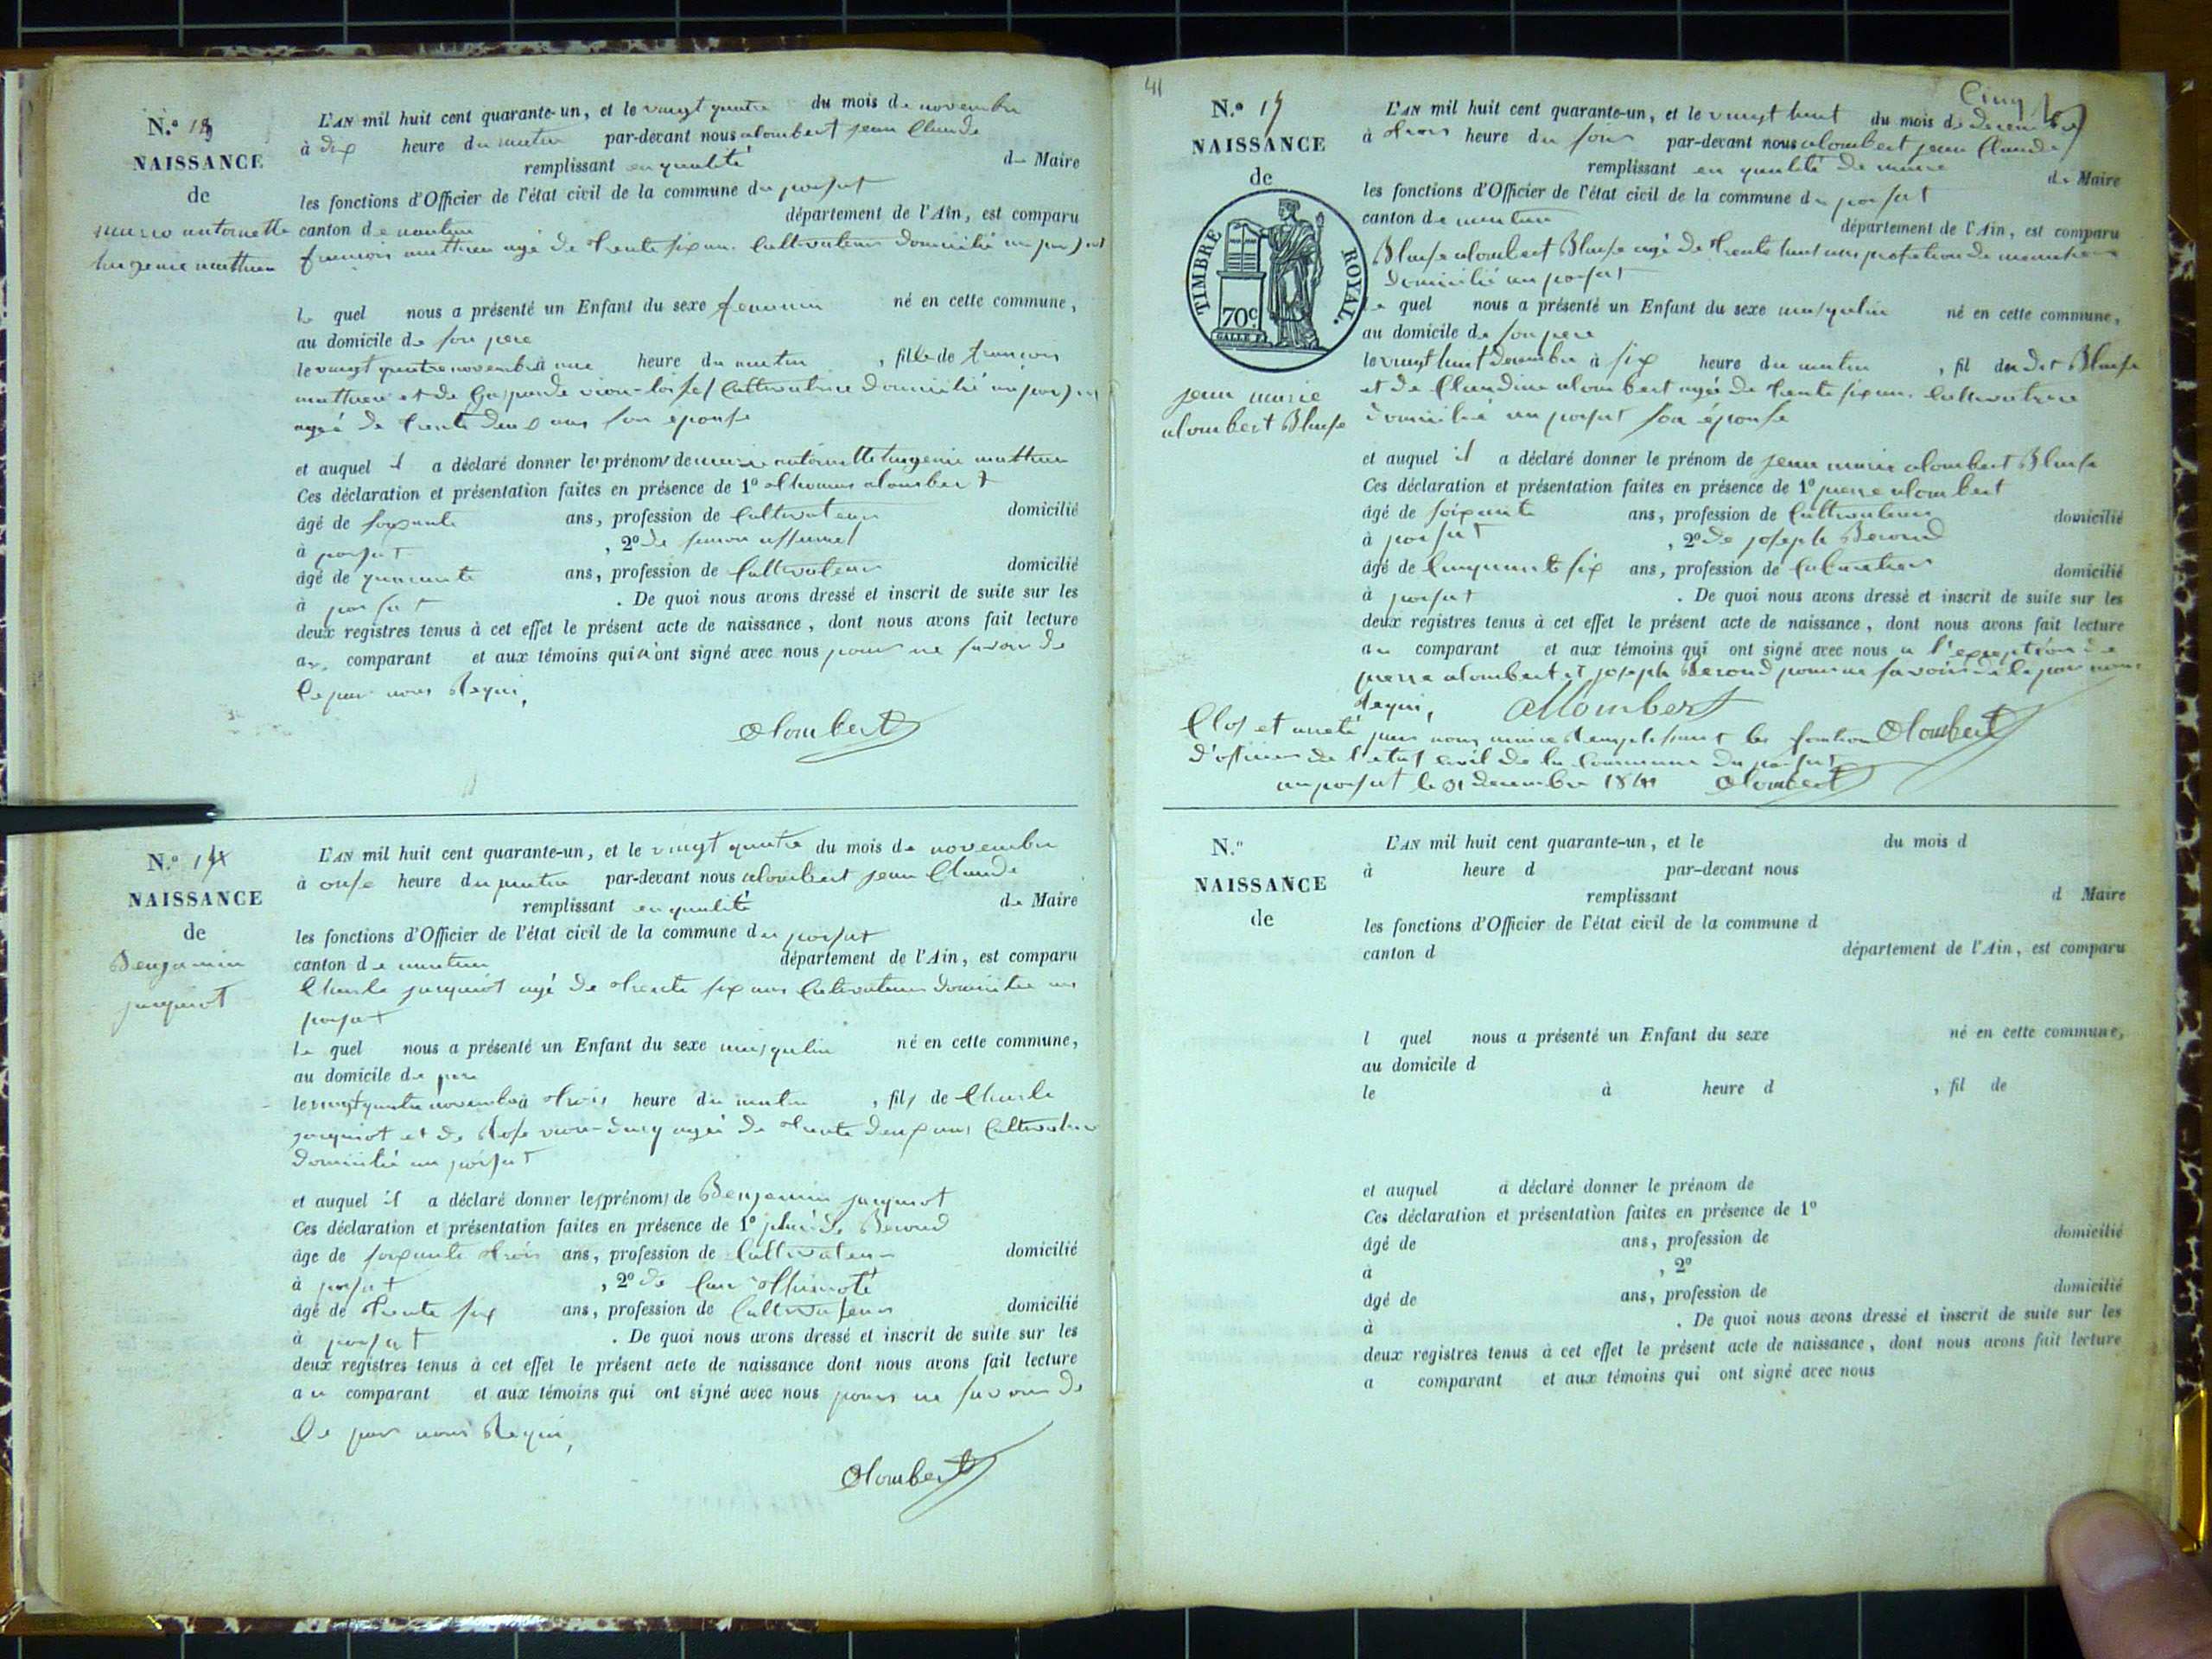 N.º 13
NAISSANCE
de
marie antoinette
eugenie mathieu
L'AN mil huit cent quarante-un, et le vingt quatre du mois de novembre
à dix heure du matin par-devant nous alombert jean Claude
remplissant en qualité de Maire
les fonctions d'Officier de l'état civil de la commune du poizat
canton de nantua département de l'Ain, est comparu
francois mathieu agé de trente six ans Cultivateur domicilié au poizat
le quel nous a présenté un Enfant du sexe feminin né en cette commune,
au domicile de son pere
le vingt quatre novembre à une heure du matin, fille de francois
mathieu et de Gasparde vion-loisel Cultivatrice domicilié au poizat
agée de trente deux ans son épouse
et auquel il a déclaré donner les prénoms de marie antoinette eugenie mathieu
Ces déclaration et présentation faites en présence de 1º thomas alombert
âgé de soixante ans, profession de Cultivateur domicilié
à poizat, 2º de
âgé de quarante ans, profession de Cultivateur domicilié
à poizat. De quoi nous avons dressé et inscrit de suite sur les
deux registres tenus à cet effet le présent acte de naissance, dont nous avons fait lecture
au comparant et aux témoins qui n'ont signé avec nous pour ne savoir de
Ce par nous Requi,
Alombert
N.º 14
NAISSANCE
de
Benjamin
jacquiot
L'AN mil huit cent quarante-un, et le vingt quatre du mois de novembre
à onse heure du matin par-devant nous alombert jean Claude
remplissant en qualité de Maire
les fonctions d'Officier de l'état civil de la commune du poizat
canton de nantua département de l'Ain, est comparu
Charle jacquiot agé de trente six ans Cultivateur domicilié au
poizat
le quel nous a présenté un Enfant du sexe masqulin né en cette commune,
au domicile de pere
le vingt quatre novembre à trois heure du matin, fils de Charle
jacquiot et de Rose vion-dury agée de trente deux ans Cultivatrice
domicilié au poizat
et auquel il a déclaré donner les prénoms de Benjamin jacquiot
Ces déclaration et présentation faites en présence de 1º placide Beroud
âgé de soixante trois ans, profession de Cultivateur domicilié
à poizat, 2º de
âgé de trente six ans, profession de Cultivateur domicilié
à poizat. De quoi nous avons dressé et inscrit de suite sur les
deux registres tenus à cet effet le présent acte de naissance dont nous avons fait lecture
au comparant et aux témoins qui ont signé avec nous pour ne savoir de
Ce par nous Requi,
Alombert
41
Cinq
N.º 15
NAISSANCE
de
TIMBRE ROYAL.
70c.
jean marie
alombert Blaise
L'AN mil huit cent quarante-un, et le vingt huit du mois de decembre
à trois heure du soir par-devant nous alombert jean Claude
remplissant en qualité de maire de Maire
les fonctions d'Officier de l'état civil de la commune du poizat
canton de nantua département de l'Ain, est comparu
Blaise alombert Blaise agé de trente huit ans profetion de
domicilié au poizat
le quel nous a présenté un Enfant du sexe masqulin né en cette commune,
au domicile de son pere
le vingt huit decembre à six heure du matin, fil du dit Blaise
et de Claudine alombert agée de trente six ans Cultivatrice
domicilié au poizat son épouse
et auquel il a déclaré donner le prénom de jean marie alombert Blaise
Ces déclaration et présentation faites en présence de 1º pierre alombert
âgé de soixante ans, profession de Cultivateur domicilié
à poizat, 2º de joseph Beroud
âgé de Cinquante six ans, profession de domicilié
à poizat. De quoi nous avons dressé et inscrit de suite sur les
deux registres tenus à cet effet le présent acte de naissance, dont nous avons fait lecture
au comparant et aux témoins qui ont signé avec nous a l'exeption de
pierre alombert et joseph Beroud pour ne savoir de le par nous
Requi, Allombert
Clos et areté par nous maire Remplissant les fontion Alombert
d'officier de l'etat civil de la Commune du poizat
au poizat le 31 decembre 1841 Alombert
N.º
NAISSANCE
de
L'AN mil huit cent quarante-un, et le du mois d
à heure d par-devant nous
remplissant d Maire
les fonctions d'Officier de l'état civil de la commune d
canton d département de l'Ain, est comparu
l quel nous a présenté un Enfant du sexe né en cette commune,
au domicile d
le à heure d , fil de
et auquel a déclaré donner le prénom de
Ces déclaration et présentation faites en présence de 1º
âgé de ans, profession de domicilié
à , 2º
âgé de ans, profession de domicilié
à . De quoi nous avons dressé et inscrit de suite sur les
deux registres tenus à cet effet le présent acte de naissance, dont nous avons fait lecture
a comparant et aux témoins qui ont signé avec nous